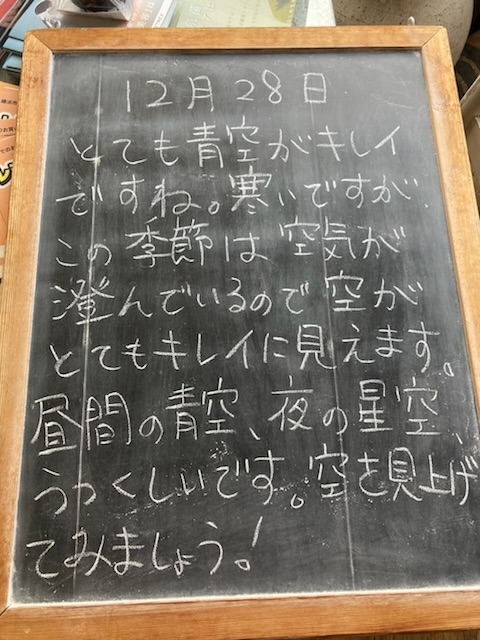 12月28日
とても青空がキレイ
ですね。寒いですが、
この季節は空気が
澄んでいるので空が
とてもキレイに見えます。
昼間の青空、夜の星空、
うつくしいです。空を見上げ
てみましょう!